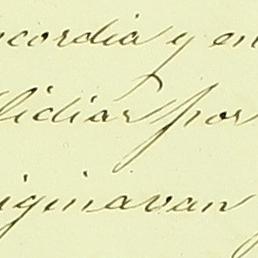 ncordia y en
lidiar por
iginavan